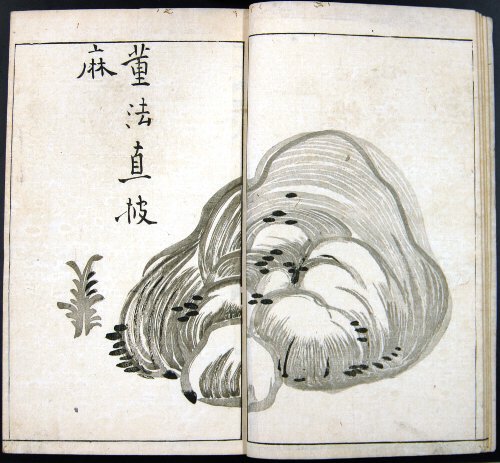 董法直披
麻